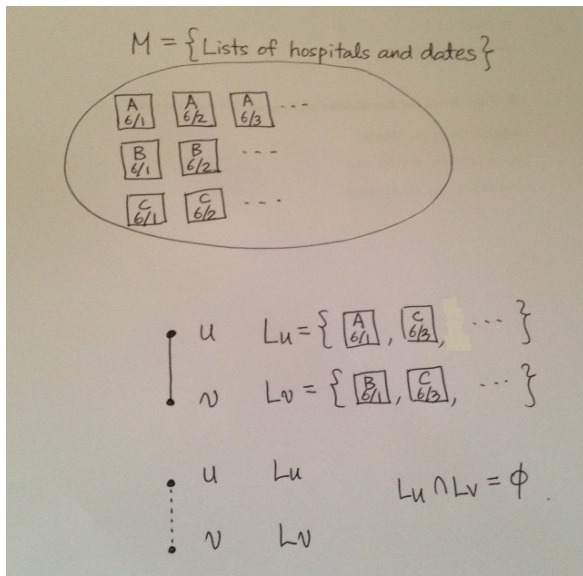 M = {Lists of hospitals and dates}
A 6/1 A 6/2 A 6/3 ---
B 6/1 B 6/2 ---
C 6/1 C 6/2 ---
u Lu = { A 6/1 , C 6/3 , ... }
v Lv = { B 6/1 , C 6/3 , ... }
u Lu
Lu ∩ Lv = ϕ .
v Lv